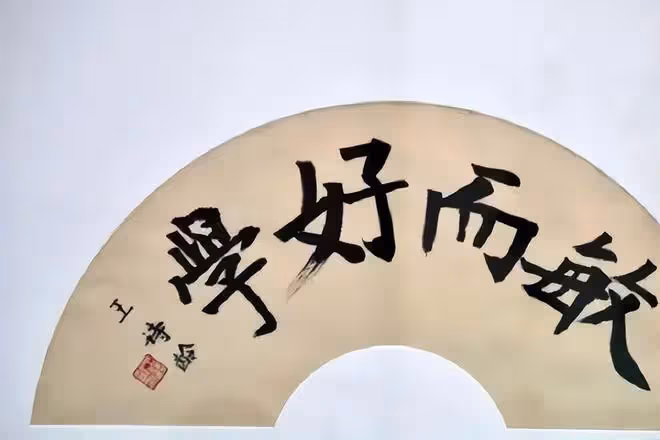 敏而好學
王詩齡